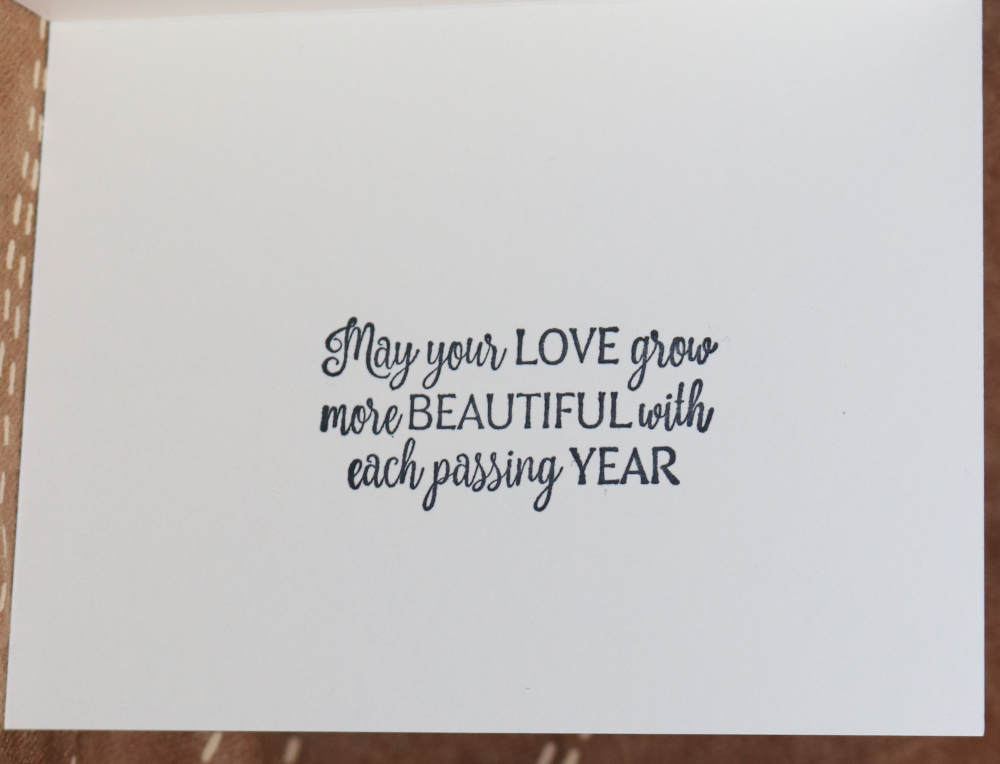 May your LOVE grow
more BEAUTIFUL with
each passing YEAR